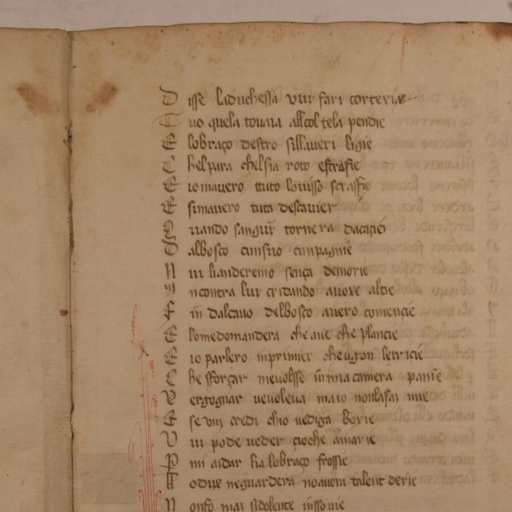 D isse laduchessa vui fari corterie
E uo quela touaia alcol tela pendie
E lobraço destro sillaueri ligie
C hel para chelsia roto estrasie
E io mauero tuto louisso scrassie
E si mauero tuta descauier
Q uando sangur tornera dacacie
D albosco cunsuo cumpagnie
N ui lianderemo sença demorie
I ncontra lui cridando auore altie
E in dalcauo delbosco auero començie
E lomedomandera che aue che plançie
E io parlero inprimier cheugon letricie
C he sforçar meuolsse inmia camera panie
V ergognar meuoleua maio nonlasai mie
E se vui credi chio uediga boxie
V ui pode ueder cioche amarie
P mi aidar ha lobraço frossie
A odue neguardera noauera talent derie
N onfo mai sidolente inssouie